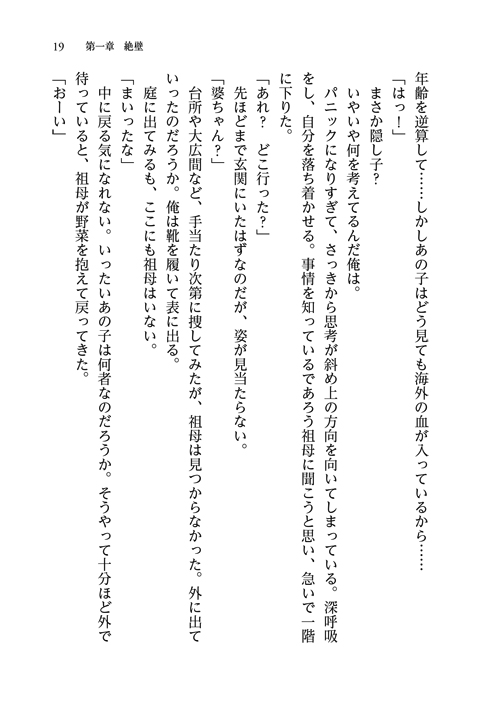 19　第一章　絶壁
年齢を逆算して……しかしあの子はどう見ても海外の血が入っているから……
「はっ！」
まさか隠し子？
いやいや何を考えてるんだ俺は。
パニックになりすぎて、さっきから思考が斜め上の方向を向いてしまっている。深呼吸
をし、自分を落ち着かせる。事情を知っているであろう祖母に聞こうと思い、急いで一階
に下りた。
「あれ？　どこ行った？」
先ほどまで玄関にいたはずなのだが、姿が見当たらない。
「婆ちゃん？」
台所や大広間など、手当たり次第に捜してみたが、祖母は見つからなかった。外に出て
いったのだろうか。俺は靴を履いて表に出る。
庭に出てみるも、ここにも祖母はいない。
「まいったな」
中に戻る気になれない。いったいあの子は何者なのだろうか。そうやって十分ほど外で
待っていると、祖母が野菜を抱えて戻ってきた。
「おーい」